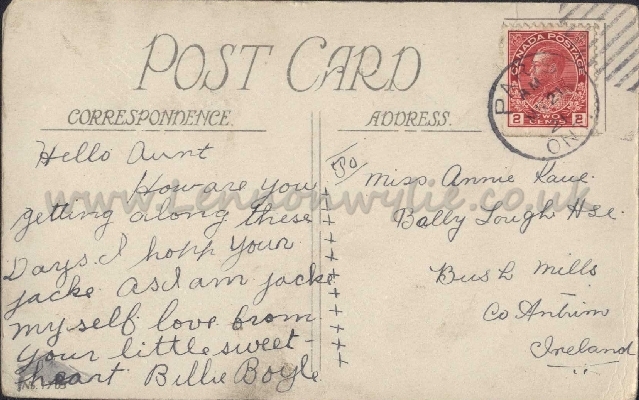 POST CARD
CORRESPONDENCE.
ADDRESS.
CANADA POSTAGE
2 TWO CENTS 2
AM
ON
Hello Aunt
How are you
getting along these
Days. I hopp your
jacke as I am jacke
myself love from
your little sweet-
heart Billie Boyle
To
Miss Annie Kane
Bally Lough Hse.
Bush Mills
Co Antrim
Ireland
www.Lennonwylie.co.uk